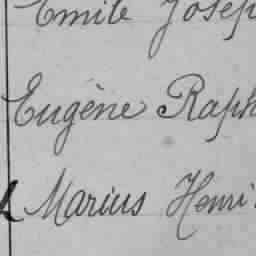 Emile Josep
Eugène Raph
Marius Henri